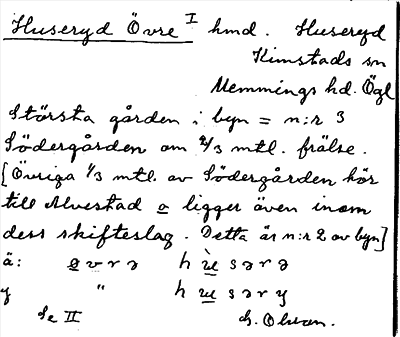 Huseryd Övre I hmd. Huseryd
Kimstads sn
Memmings hd. Ögl
Största gården i byn = n:r 3
Södergården om 2/3 mtl. frälse.
[Övriga 1/3 mtl. av Södergården hör
till Alvestad o ligger även inom
dess skifteslag. Detta är n:r 2 av byn]
ä: øvrə hùsərə
y " hùsəry
Se II